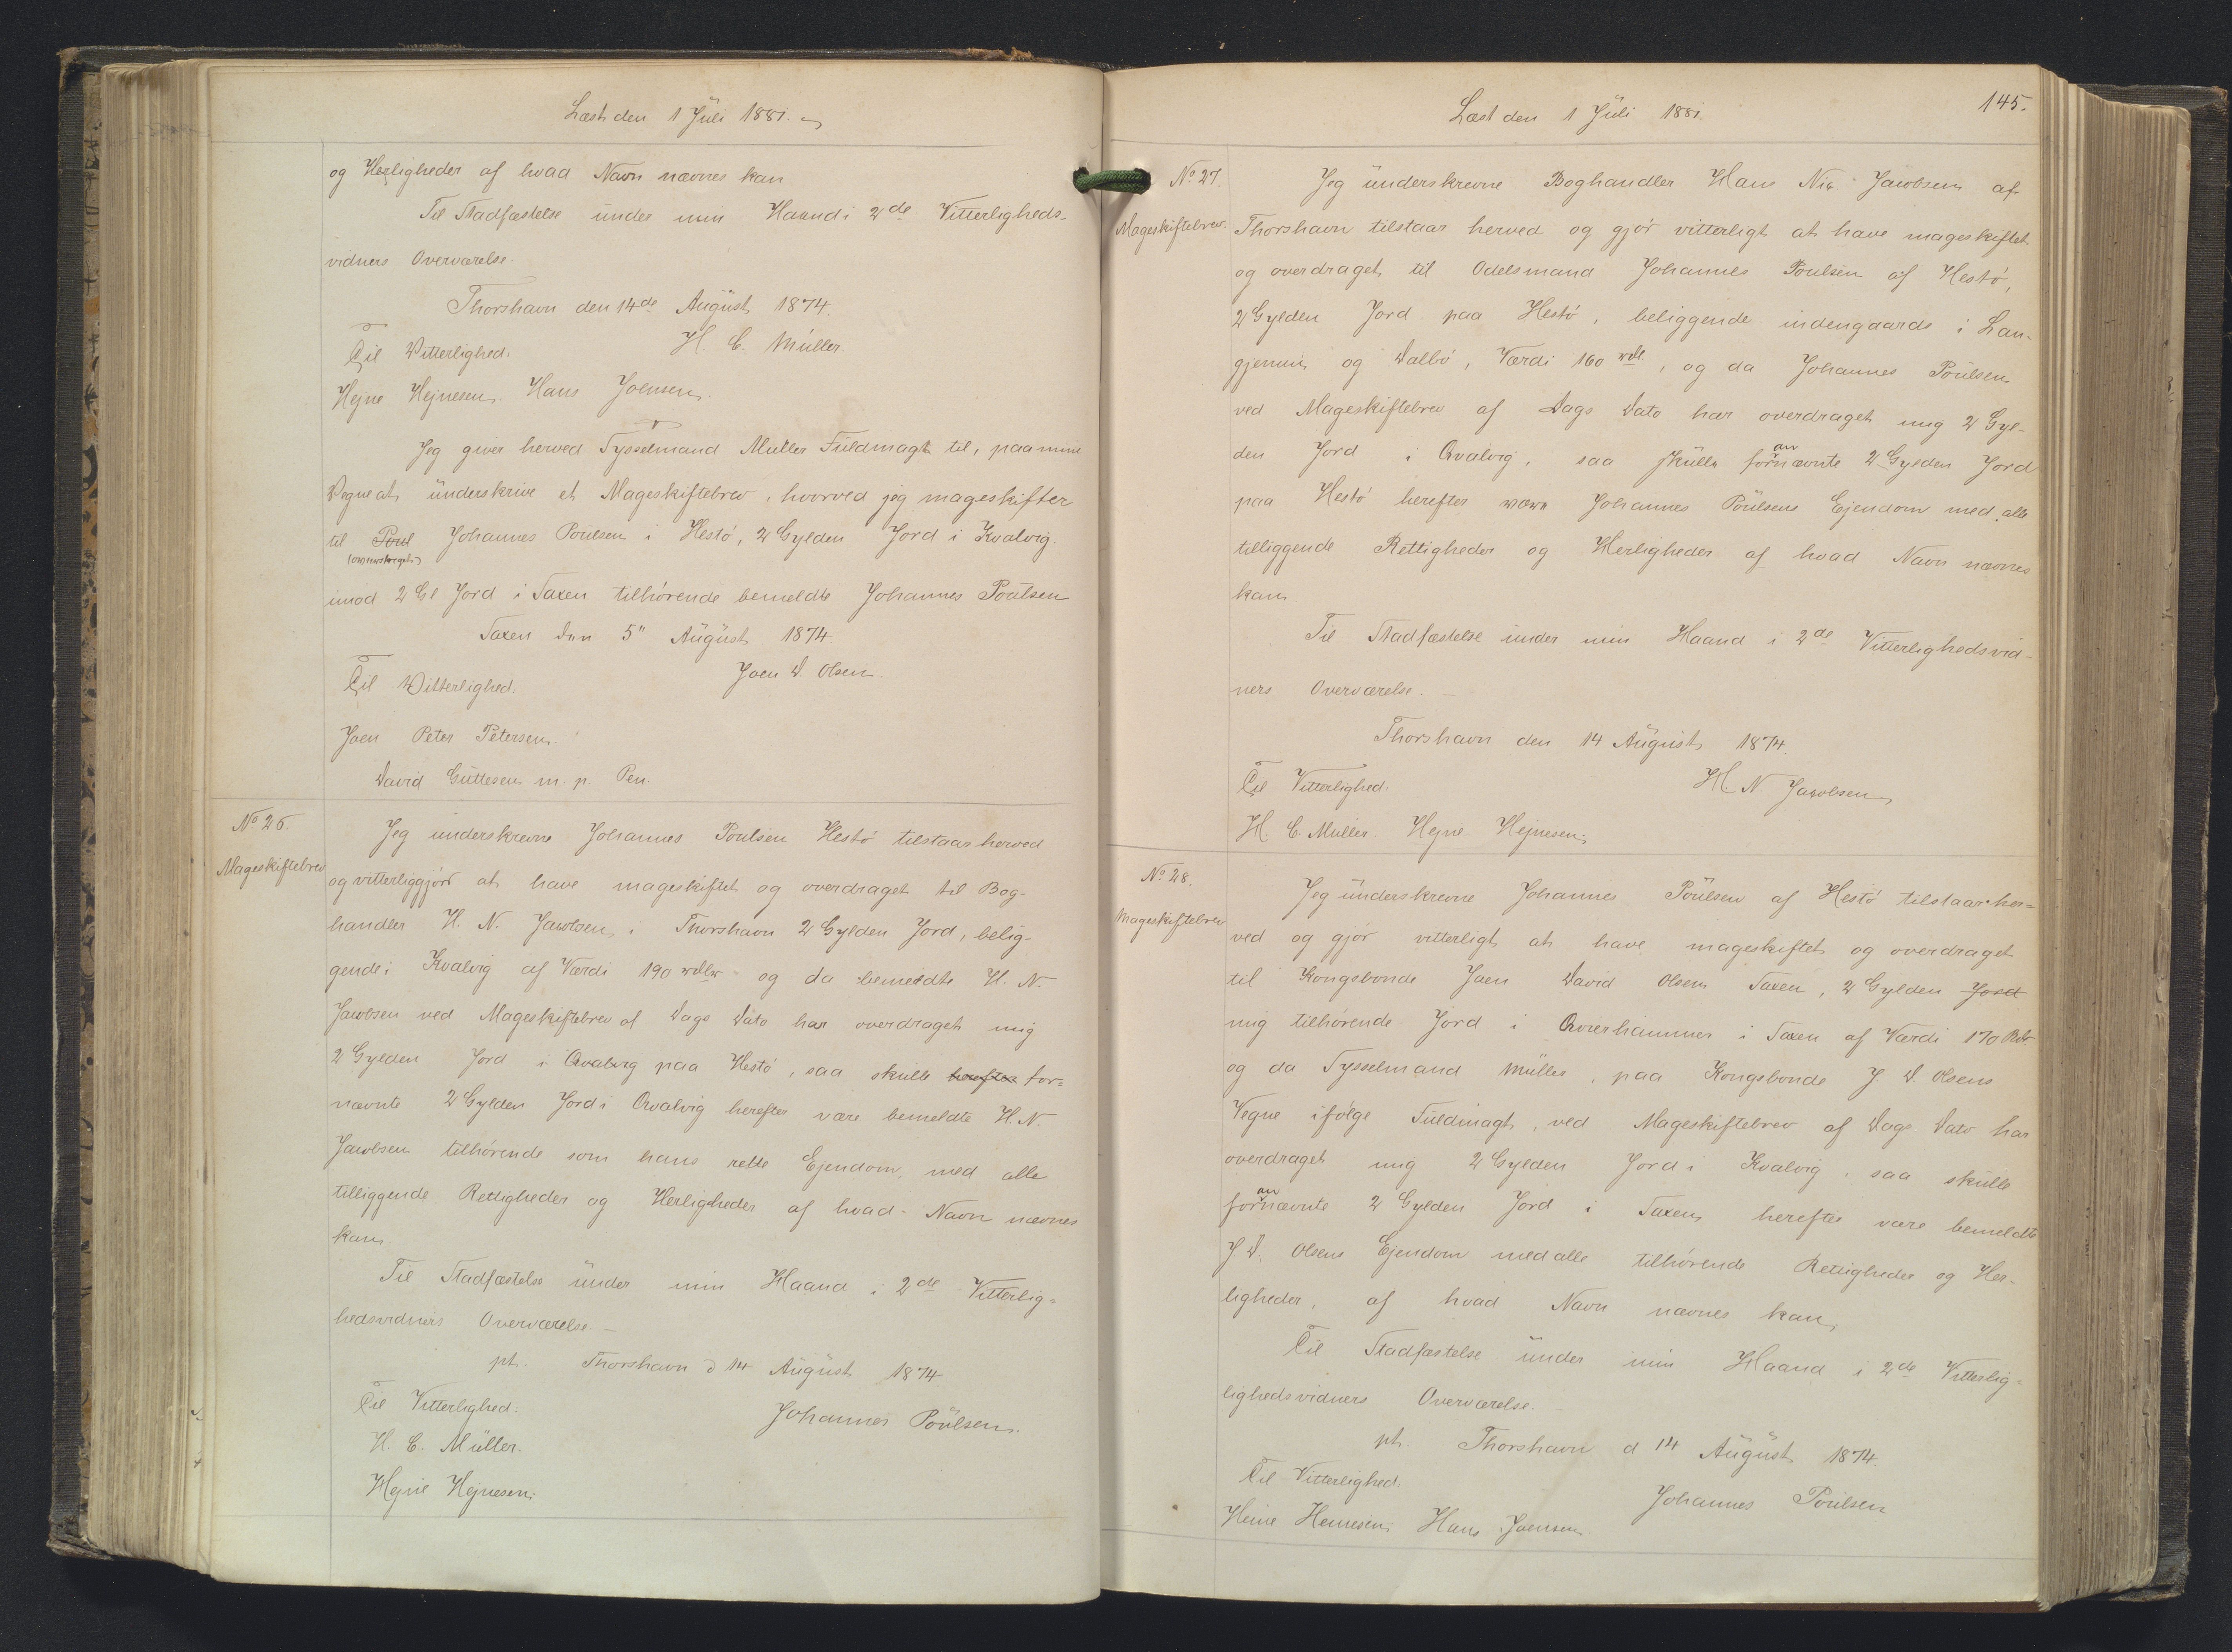 Læst den 1 Juli 1881.
og Herligheder af hvad Navn nævnes kan
Til Stadfæstelse under min Haand i 2de Vitterligheds-
vidners Overværelse.
Thorshavn den 14de August 1874.
Til Vitterlighed. H. C. Müller.
Hejne Hejnesen. Hans Joensen.
Jeg giver herved Sysselmand Müller Fuldmagt til, paa mine
Vegne at underskrive et Mageskiftebrev, hvorved jeg mageskifter
til Poul Johannes Poulsen i Hestø, 2 Gylden Jord i Kvalvig
(overstreget)
imod 2 Gl Jord i Saxen tilhørende bemeldte Johannes Poulsen
Saxen den 5" August 1874.
Til Vitterlighed. Joen D. Olsen.
Joen Peter Petersen.
David Guttesen m. p. Pen.
No 26.
Mageskiftebrev
Jeg underskrevne Johannes Poulsen Hestø tilstaar herved
og vitterliggjør at have mageskiftet og overdraget til Bog-
handler H. N. Jacobsen i Thorshavn 2 Gylden Jord, belig-
gende i Kvalvig af Værdi 190 rdlr og da bemeldte H. N.
Jacobsen ved Mageskiftebrev af Dags Dato har overdraget mig
2 Gylden Jord i Qvalvig paa Hestø, saa skulle herefter for-
nævnte 2 Gylden Jord i Qvalvig herefter være bemeldte H. N.
Jacobsen tilhørende som hans rette Ejendom, med alle
tilliggende Rettigheder og Herligheder af hvad Navn nævnes
kan.
Til Stadfæstelse under min Haand i 2de Vitterlig=
hedsvidners Overværelse.
pt. Thorshavn d 14 August 1874.
Til Vitterlighed: Johannes Poulsen.
H. C. Müller.
Hejne Hejnesen.
Læst den 1 Juli 1881.
145.
No 27.
Mageskiftebrev.
Jeg underskrevne Boghandler Hans Nic. Jacobsen af
Thorshavn tilstaar herved og gjør vitterligt at have mageskiftet
og overdraget til Odelsmand Johannes Poulsen af Hestø,
2 Gylden Jord paa Hestø, beliggende indengaards i Lan-
gjennis og Dalbø, Værdi 160 rdl, og da Johannes Poulsen
ved Mageskiftebrev af Dags Dato har overdraget mig 2 Gyl-
den Jord i Qvalvig, saa skulle foranævnte 2 Gylden Jord
paa Hestø herefter være Johannes Poulsens Ejendom med alle
tilliggende Rettigheder og Herligheder af hvad Navn nævnes
kan
Til Stadfæstelse under min Haand i 2de Vitterlighedsvid-
ners Overværelse.
Thorshavn den 14 August 1874.
Til Vitterlighed. H. N. Jacobsen
H. C. Müller. Hejne Hejnesen.
No 28.
Mageskiftebrev
Jeg underskrevne Johannes Poulsen af Hestø tilstaar her=
ved og gjør vitterligt at have mageskiftet og overdraget
til Kongsbonde Joen David Olsen Saxen, 2 Gylden Jord
mig tilhørende Jord i Qvierhammer i Saxen af Værdi 170 Rdlr
og da Sysselmand Müller, paa Kongsbonde J D. Olsens
Vegne ifølge Fuldmagt, ved Mageskiftebrev af Dags Dato har
overdraget mig 2 Gylden Jord i Kvalvig, saa skulle
forannævnte 2 Gylden Jord i Saxen herefter være bemeldte
J D. Olsens Ejendom med alle tilhørende Rettigheder og Her-
ligheder, af hvad Navn nævnes kan.
Til Stadfæstelse under min Haand i 2de Vitterlig=
lighedsvidners Overværelse.
pt. Thorshavn d 14 August 1874.
Til Vitterlighed. Johannes Poulsen
Heine Heinesen Hans Joensen